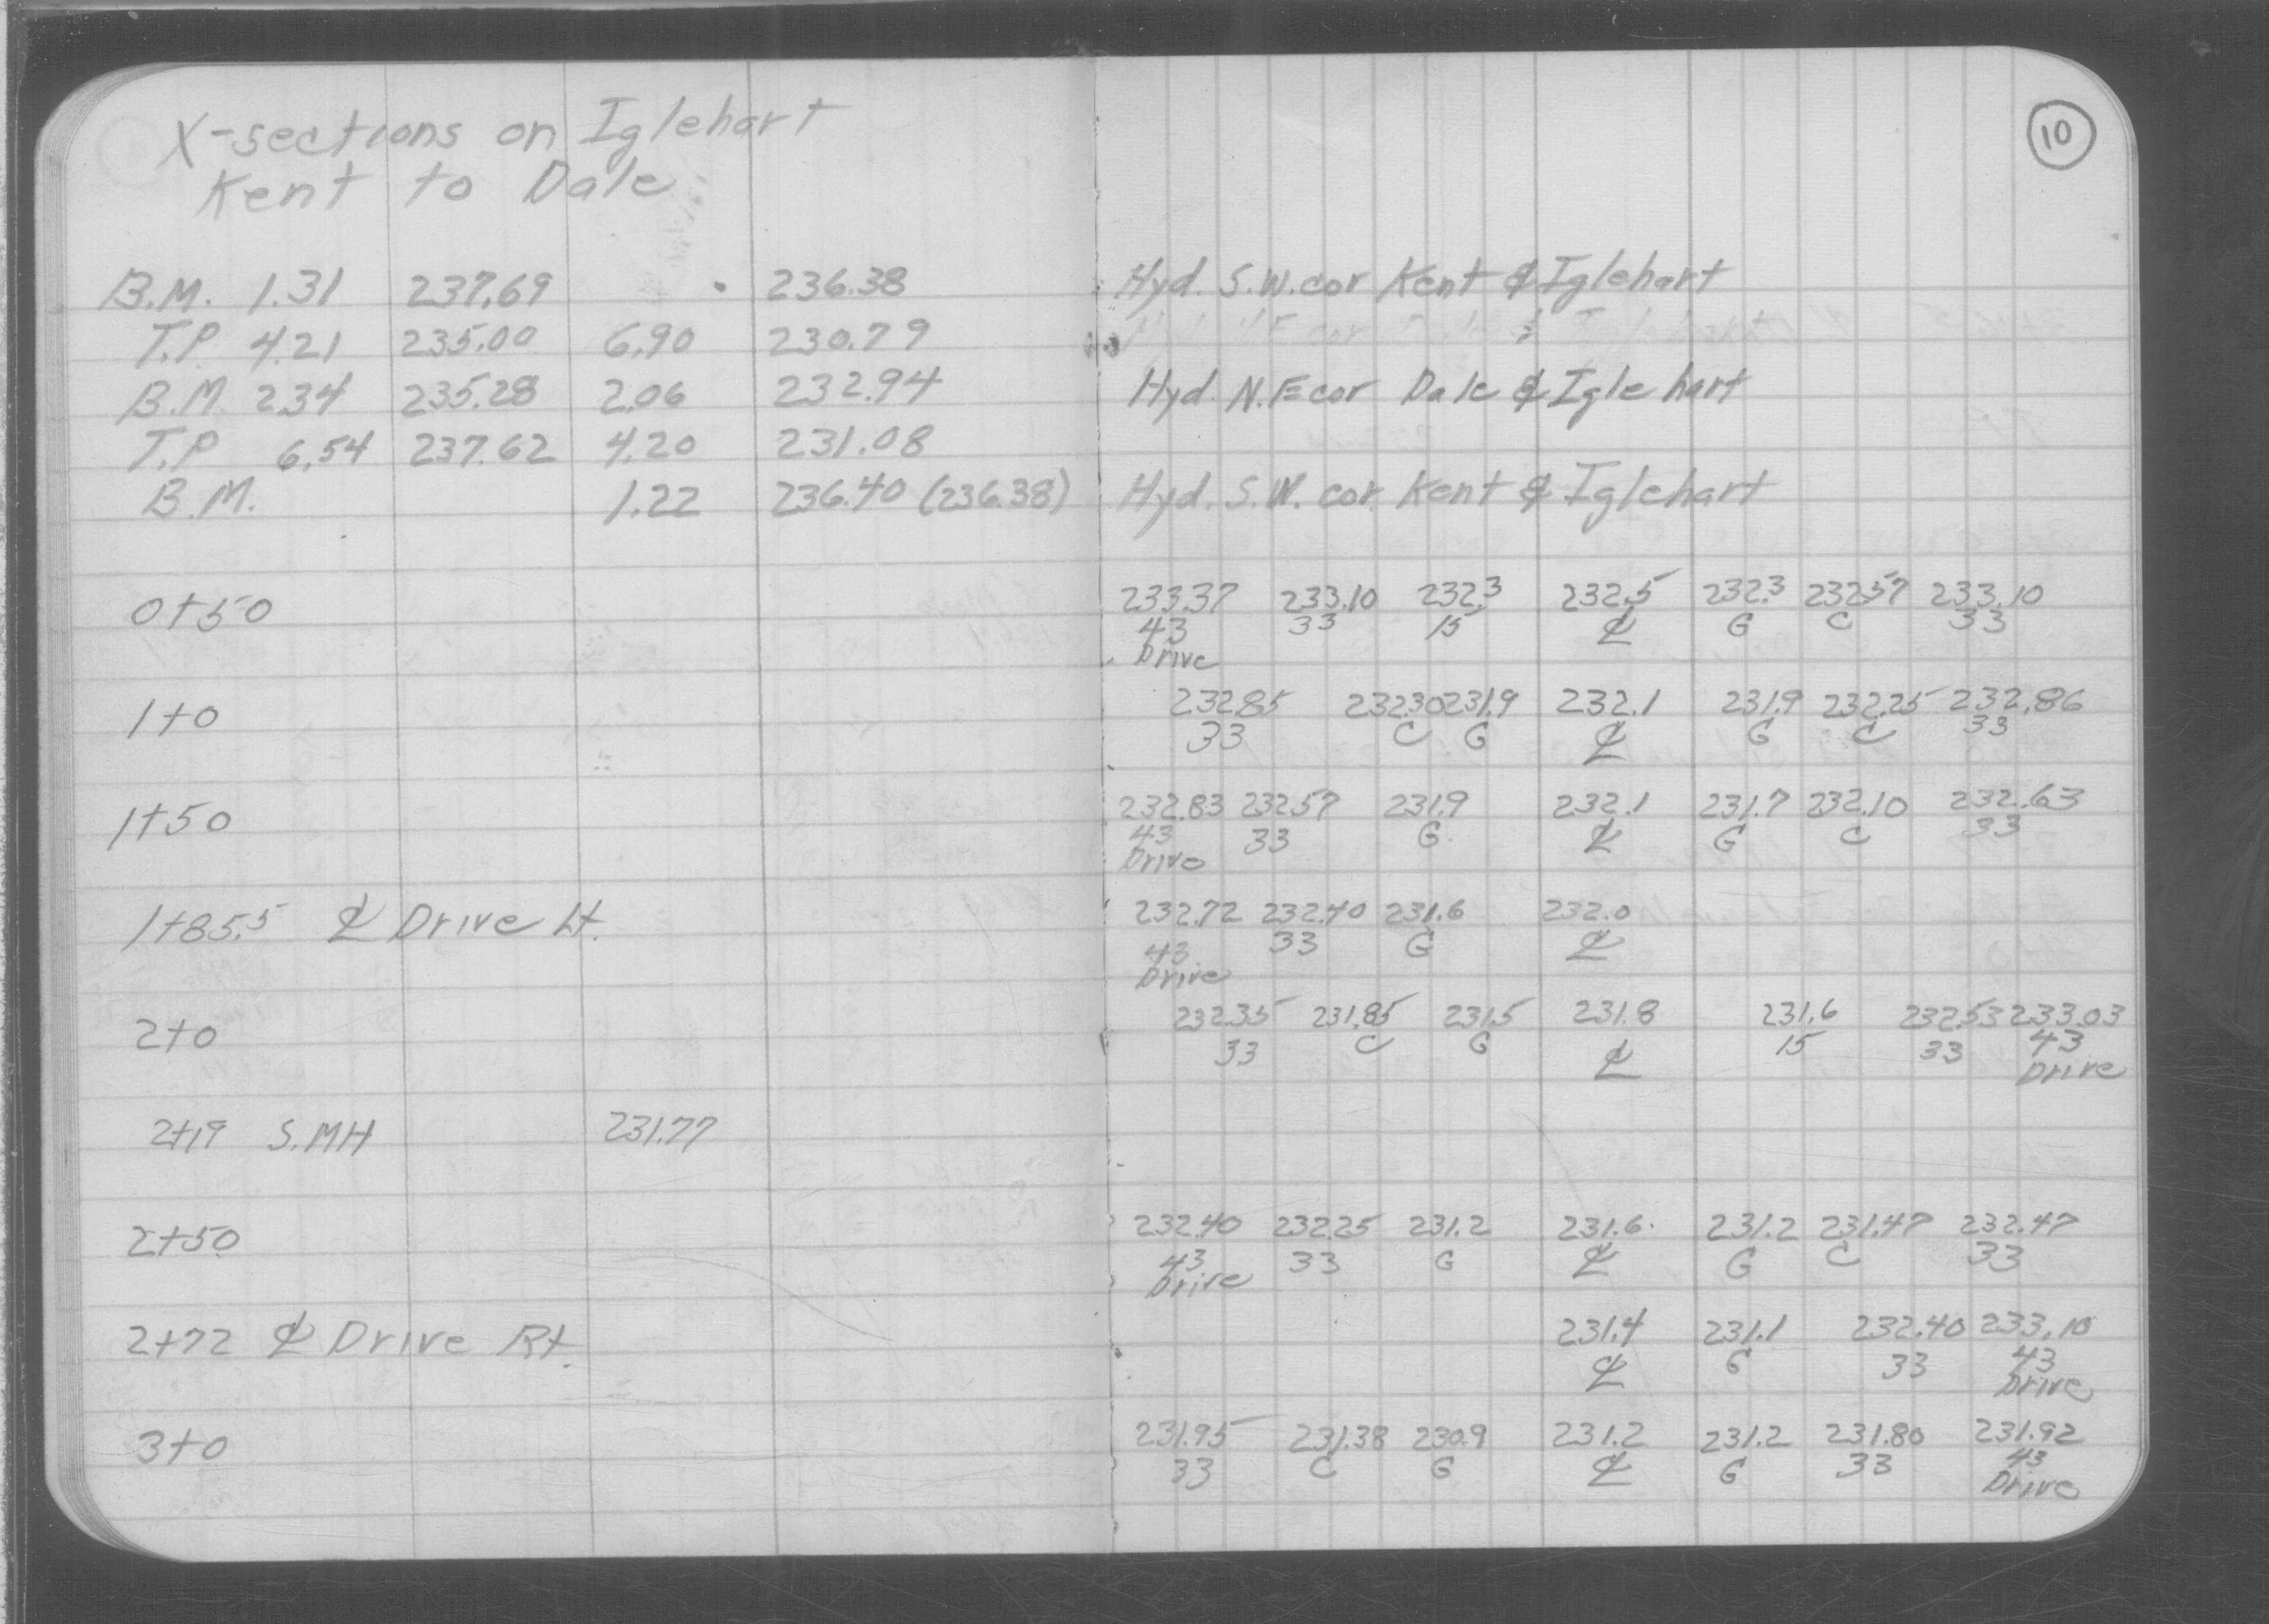 X-sections on Iglehart
Kent to Dale
10
B.M. 1.31 237.69 236.38 Hyd. S.W. cor Kent & Iglehart
T.P. 4.21 235.00 6.90 230.79
B.M. 2.34 235.28 2.06 232.94 Hyd. N.E cor Dale & Iglehart
T.P 6.54 237.62 4.20 231.08
B.M. 1.22 236.40 (236.38) Hyd. S.W. cor. Kent & Iglehart
0+50 233.37 233.10 232.3 232.5 232.3 232.57 233.10
43 33 15 ℄ G C 33
Drive
1+0 232.85 232.30 231.9 232.1 231.9 232.25 232.86
33 C G ℄ G C 33
1+50 232.83 232.57 231.9 232.1 231.7 232.10 232.63
43 33 G ℄ G C 33
Drive
1+85.5 ℄ Drive Lt. 232.72 232.40 231.6 232.0
43 33 G ℄
Drive
2+0 232.35 231.85 231.5 231.8 231.6 232.53 233.03
33 C G ℄ 15 33 43
Drive
2+19 S.MH 231.77
2+50 232.40 232.25 231.2 231.6 231.2 231.47 232.47
43 33 G ℄ G C 33
Drive
2+72 ℄ Drive Rt. 231.4 231.1 232.40 233.10
℄ G 33 43
Drive
3+0 231.95 231.38 230.9 231.2 231.2 231.80 231.92
33 C G ℄ G 33 43
Drive